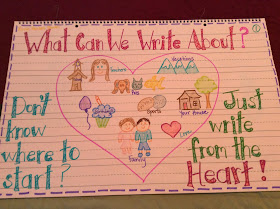 What Can We Write About?
teachers
vacations
pets
Sports
your house
Love
family
Don't
know
where to
start?
Just
write
from the
Heart!